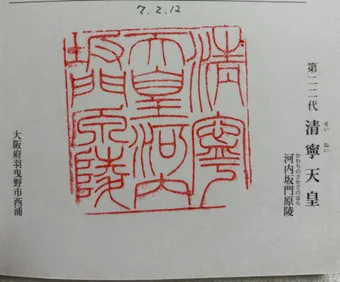 7.2.12
第二二代 清寧天皇
せいねい
河内坂門原陵
かわちのさかどのはら
清寧
天皇河内
坂門原陵
大阪府羽曳野市西浦